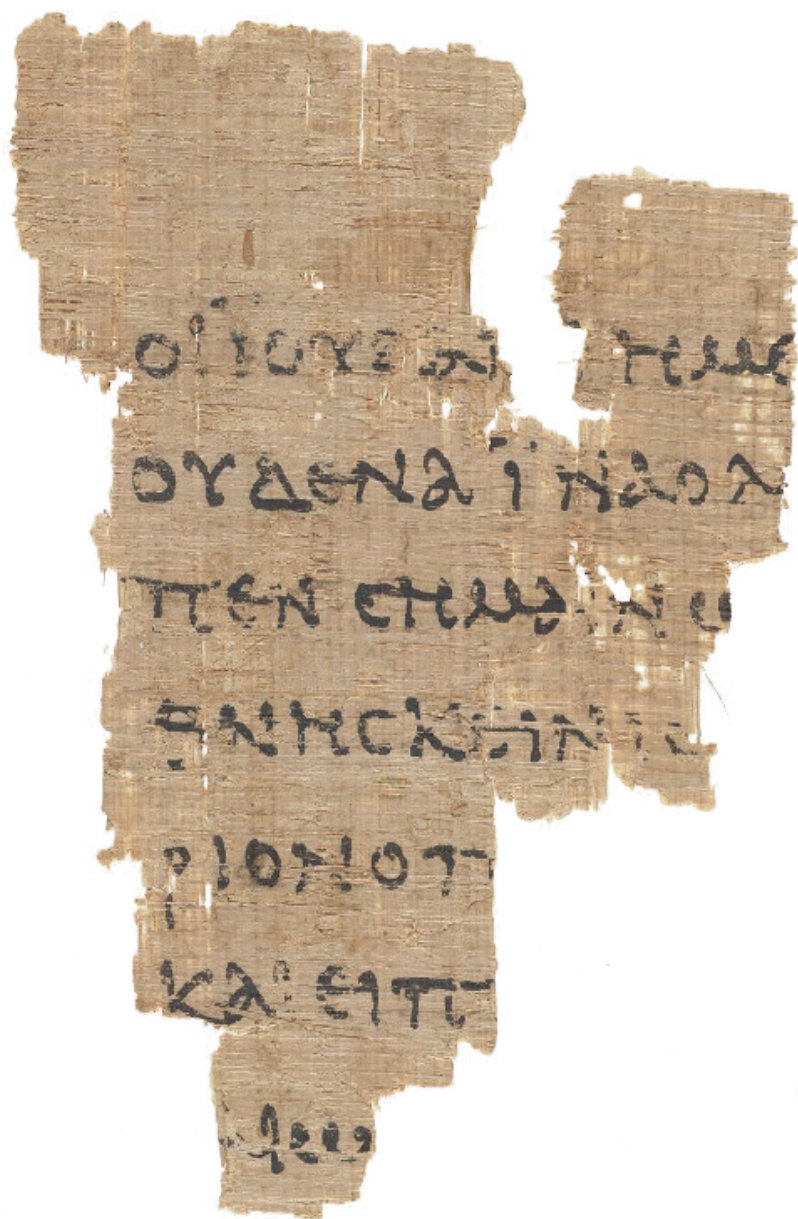 ΟΙ ΙΟΥΔΑΙ ΗΜΕ
ΟΥΔΕΝΑ ΪΝΑ Ο Λ
ΠΕΝ ϹΗΜΑΙΝΩ
ΘΝΗϹΚΕΙΝ ΙϹ
ΡΙΟΝ Ο Π
ΚΑΙ ΕΙΠ
ΑΙΩ